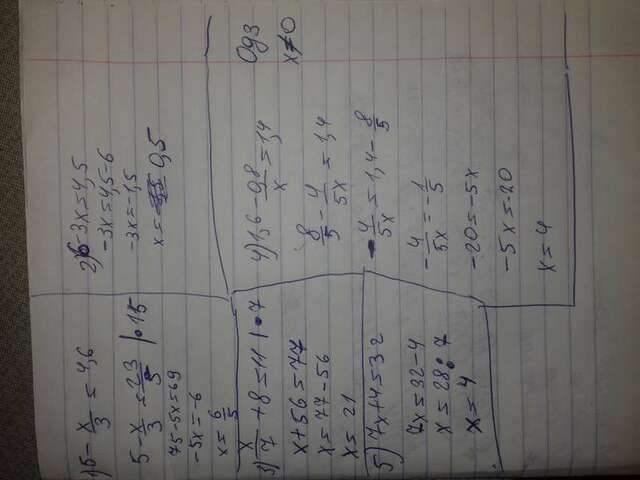 1) 5 - x/3 = 4,6
5 - x/3 = 23/5 | · 15
75 - 5x = 69
-5x = -6
x = 6/5
2) 6 - 3x = 4,5
-3x = 4,5 - 6
-3x = -1,5
x = 0,5
3) x/7 + 8 = 11 | · 7
x + 56 = 77
x = 77 - 56
x = 21
4) 1,6 - 0,8/x = 1,4
ОДЗ
x ≠ 0
8/5 - 4/5x = 1,4
-4/5x = 1,4 - 8/5
-4/5x = -1/5
-20 = -5x
-5x = -20
x = 4
5) 7x + 4 = 32
7x = 32 - 4
x = 28 : 7
x = 4